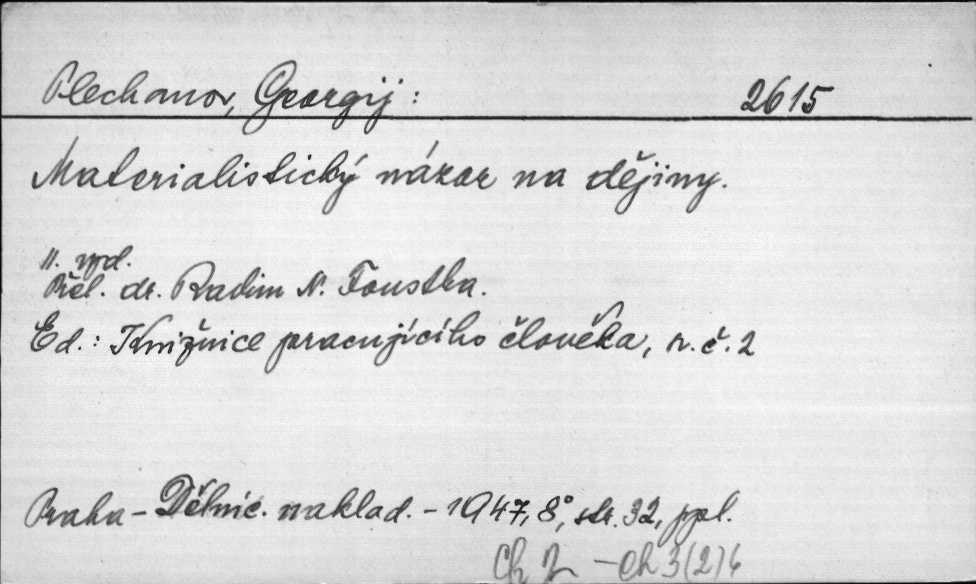 Plechanov, Georgij: 2615
Materialistický názor na dějiny.
II. vyd.
Přel. dr. Radim N. Foustka
Ed.: Knižnice pracujícího člověka, r. č. 2
Praha - Dělnic. naklad. - 1947, 8°, str. 32, ppl.
Ch 2 - Ch 3(2)6